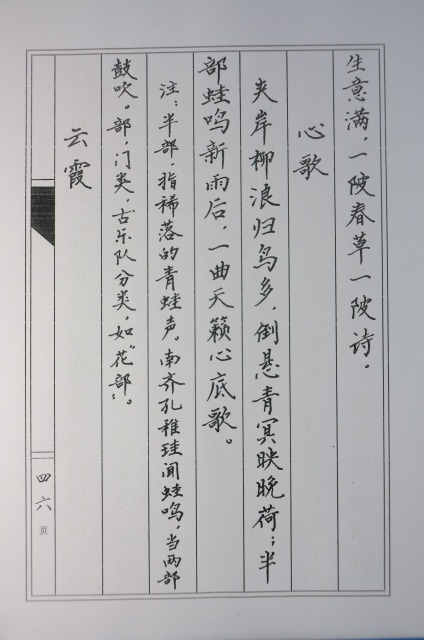 生意满，一陂春草一陂诗。
心歌
夹岸柳浪归鸟多，倒悬青冥映晚荷；半
部蛙鸣新雨后，一曲天籁心底歌。
注：半部，指稀落的青蛙声。南齐孔稚珪闻蛙鸣，当两部
鼓吹。部，门类，古乐队分类，如“花部”。
云霞
四六页